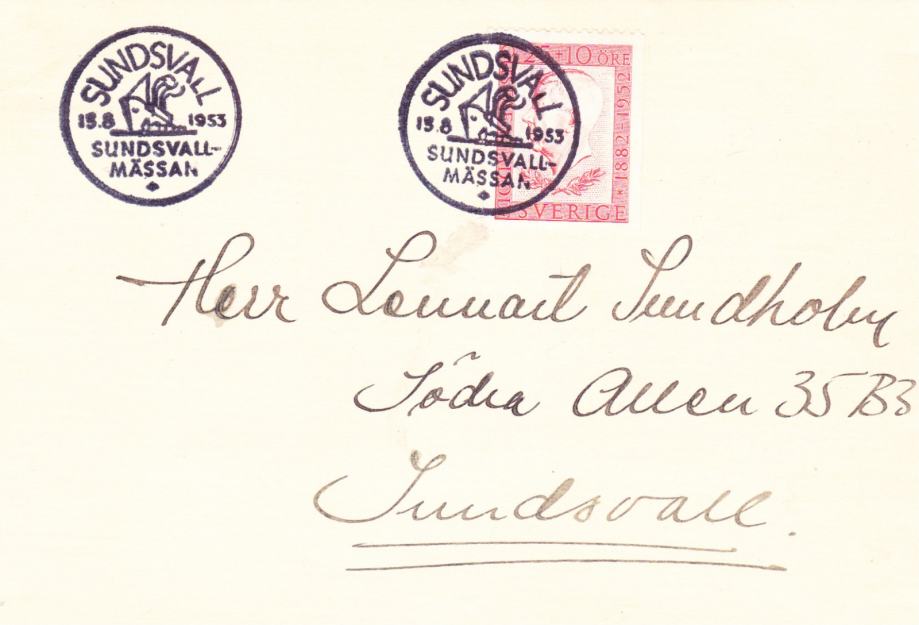 SUNDSVALL
15.8 1953
SUNDSVALL-
MÄSSAN
SUNDSVALL
15.8 1953
SUNDSVALL-
MÄSSAN
25+10 ÖRE
1882-1952
SVERIGE
Herr Lennart Sundholm
Södra Allen 35 B3
Sundsvall.